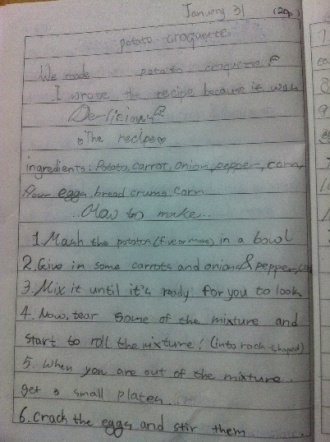 January 31 (20p)
potato croquete
We made potato croquete!
I wrote the recipe because it was
Derlicious!
The recipe
ingredients: Potato, carrot, onion, pepper,
flour eggs, bread crums, corn
...How to make...
1. Mash the potato in a bowl
2. Give in some carrots and onion & pepper,
3. Mix it until it's ready for you to look
4. Now, tear some of the mixture and
start to roll the mixture! (into rock shaped)
5. When you are out of the mixture..
get 3 small plates...
6. Crack the eggs and stir them